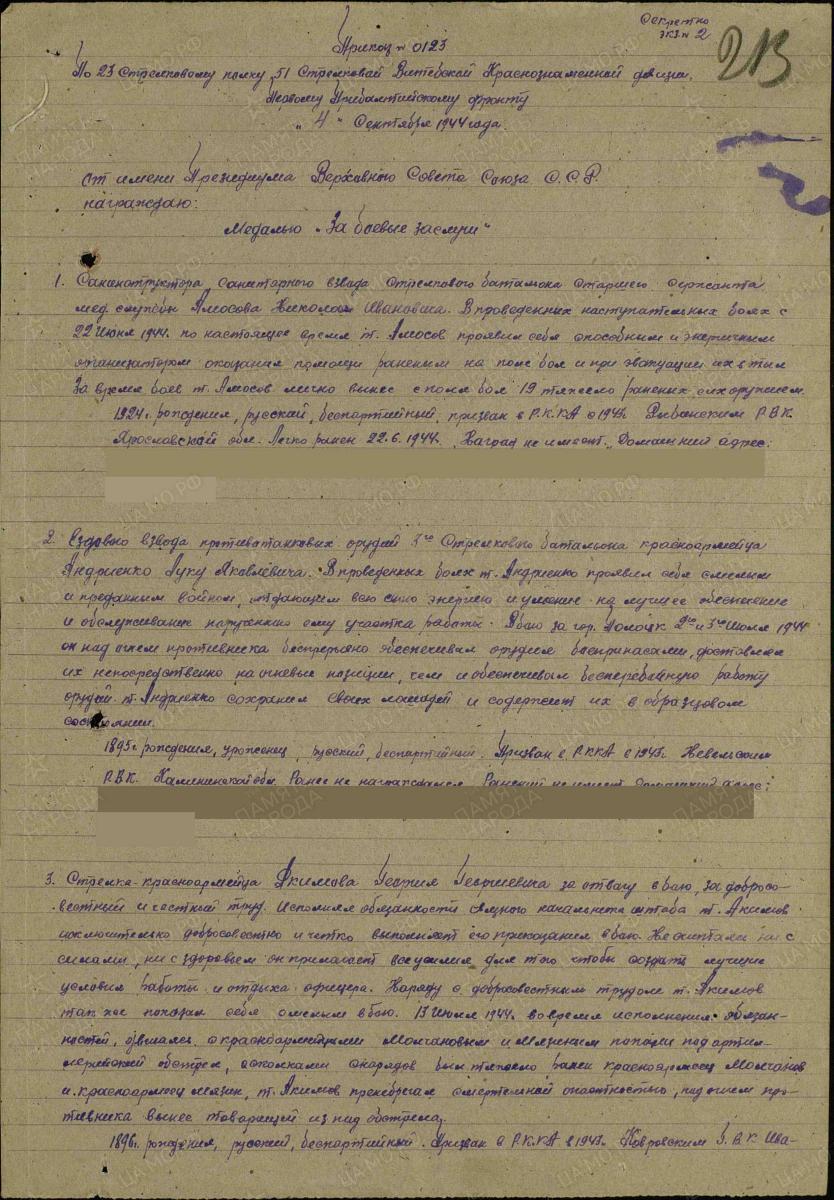 Секретно
экз. № 2
213
Приказ № 0123
По 23 Стрелковому полку, 51 Стрелковой Витебской Краснознаменной дивизии,
Первому Прибалтийскому фронту
„4“ Сентября 1944 года.
от имени Президиума Верховного Совета Союза С.С.Р.
награждаю:
Медалью „За боевые заслуги“
1. Санинструктора, санитарного взвода стрелкового батальона старшего сержанта
мед. службы Амосова Николая Ивановича. В проведенных наступательных боях с
22 июня 1944г. по настоящее время т. Амосов проявил себя способным и энергичным
организатором оказания помощи раненым на поле боя и при эвакуации их в тыл
За время боев т. Амосов лично вынес с поля боя 19 тяжело раненых с их оружием.
1924 г. рождения, русский, беспартийный, призван в Р.К.К.А в 1943г. Р.В.К.
Ярославской обл. Легко ранен 22.6.1944г. Наград не имеет. Домашний адрес:
2. Ездового взвода противотанковых орудий 3го Стрелкового батальона красноармейца
Андриенко Луку Яковлевича. В проведенных боях т. Андриенко проявил себя смелым
и преданным войном, отдающим всю свою энергию и умение на лучшее обеспечение
и обслуживание порученного ему участка работы. В бою за гор. Полоцк 2го и 3го июля 1944
он над огнем противника беспрерывно обеспечивал орудия боеприпасами, доставляя
их непосредственно на огневые позиции, чем и обеспечивал бесперебойную работу
орудий. т. Андриенко сохранил своих лошадей и содержит их в образцовом
состоянии.
1895г. рождения, уроженец, русский, беспартийный. Призван в Р.К.К.А в 1943г. Невельским
Р.В.К. Калининской обл. Ранее не награждался. Ранений не имеет. Домашний адрес:
3. Стрелка-красноармейца Акимова Георгия Георгиевича за отвагу в бою, за добросо-
вестный и честный труд. Исполняя обязанности связного начальника штаба т. Акимов
исключительно добросовестно и четко выполняет его приказания в бою. Не считаясь ни с
силами, ни с здоровьем он прилагает все усилия для того чтобы создать лучшие
условия работы и отдыха офицера. Наряду с добросовестным трудом т. Акимов
так же показал себя смелым в бою. 13 июля 1944г. во время исполнения обязан-
ностей, двигаясь с красноармейцами Молчановым и Мязиным попали под артил-
лерийский обстрел, осколками снарядов был тяжело ранен красноармеец Молчанов
и красноармеец Мязин, т. Акимов пренебрегая смертельной опасностью, под огнем про-
тивника вынес товарищей из под обстрела.
1896г. рождения, русский, беспартийный. Призван в Р.К.К.А в 1943г. Ковровским Г.В.К Ива-